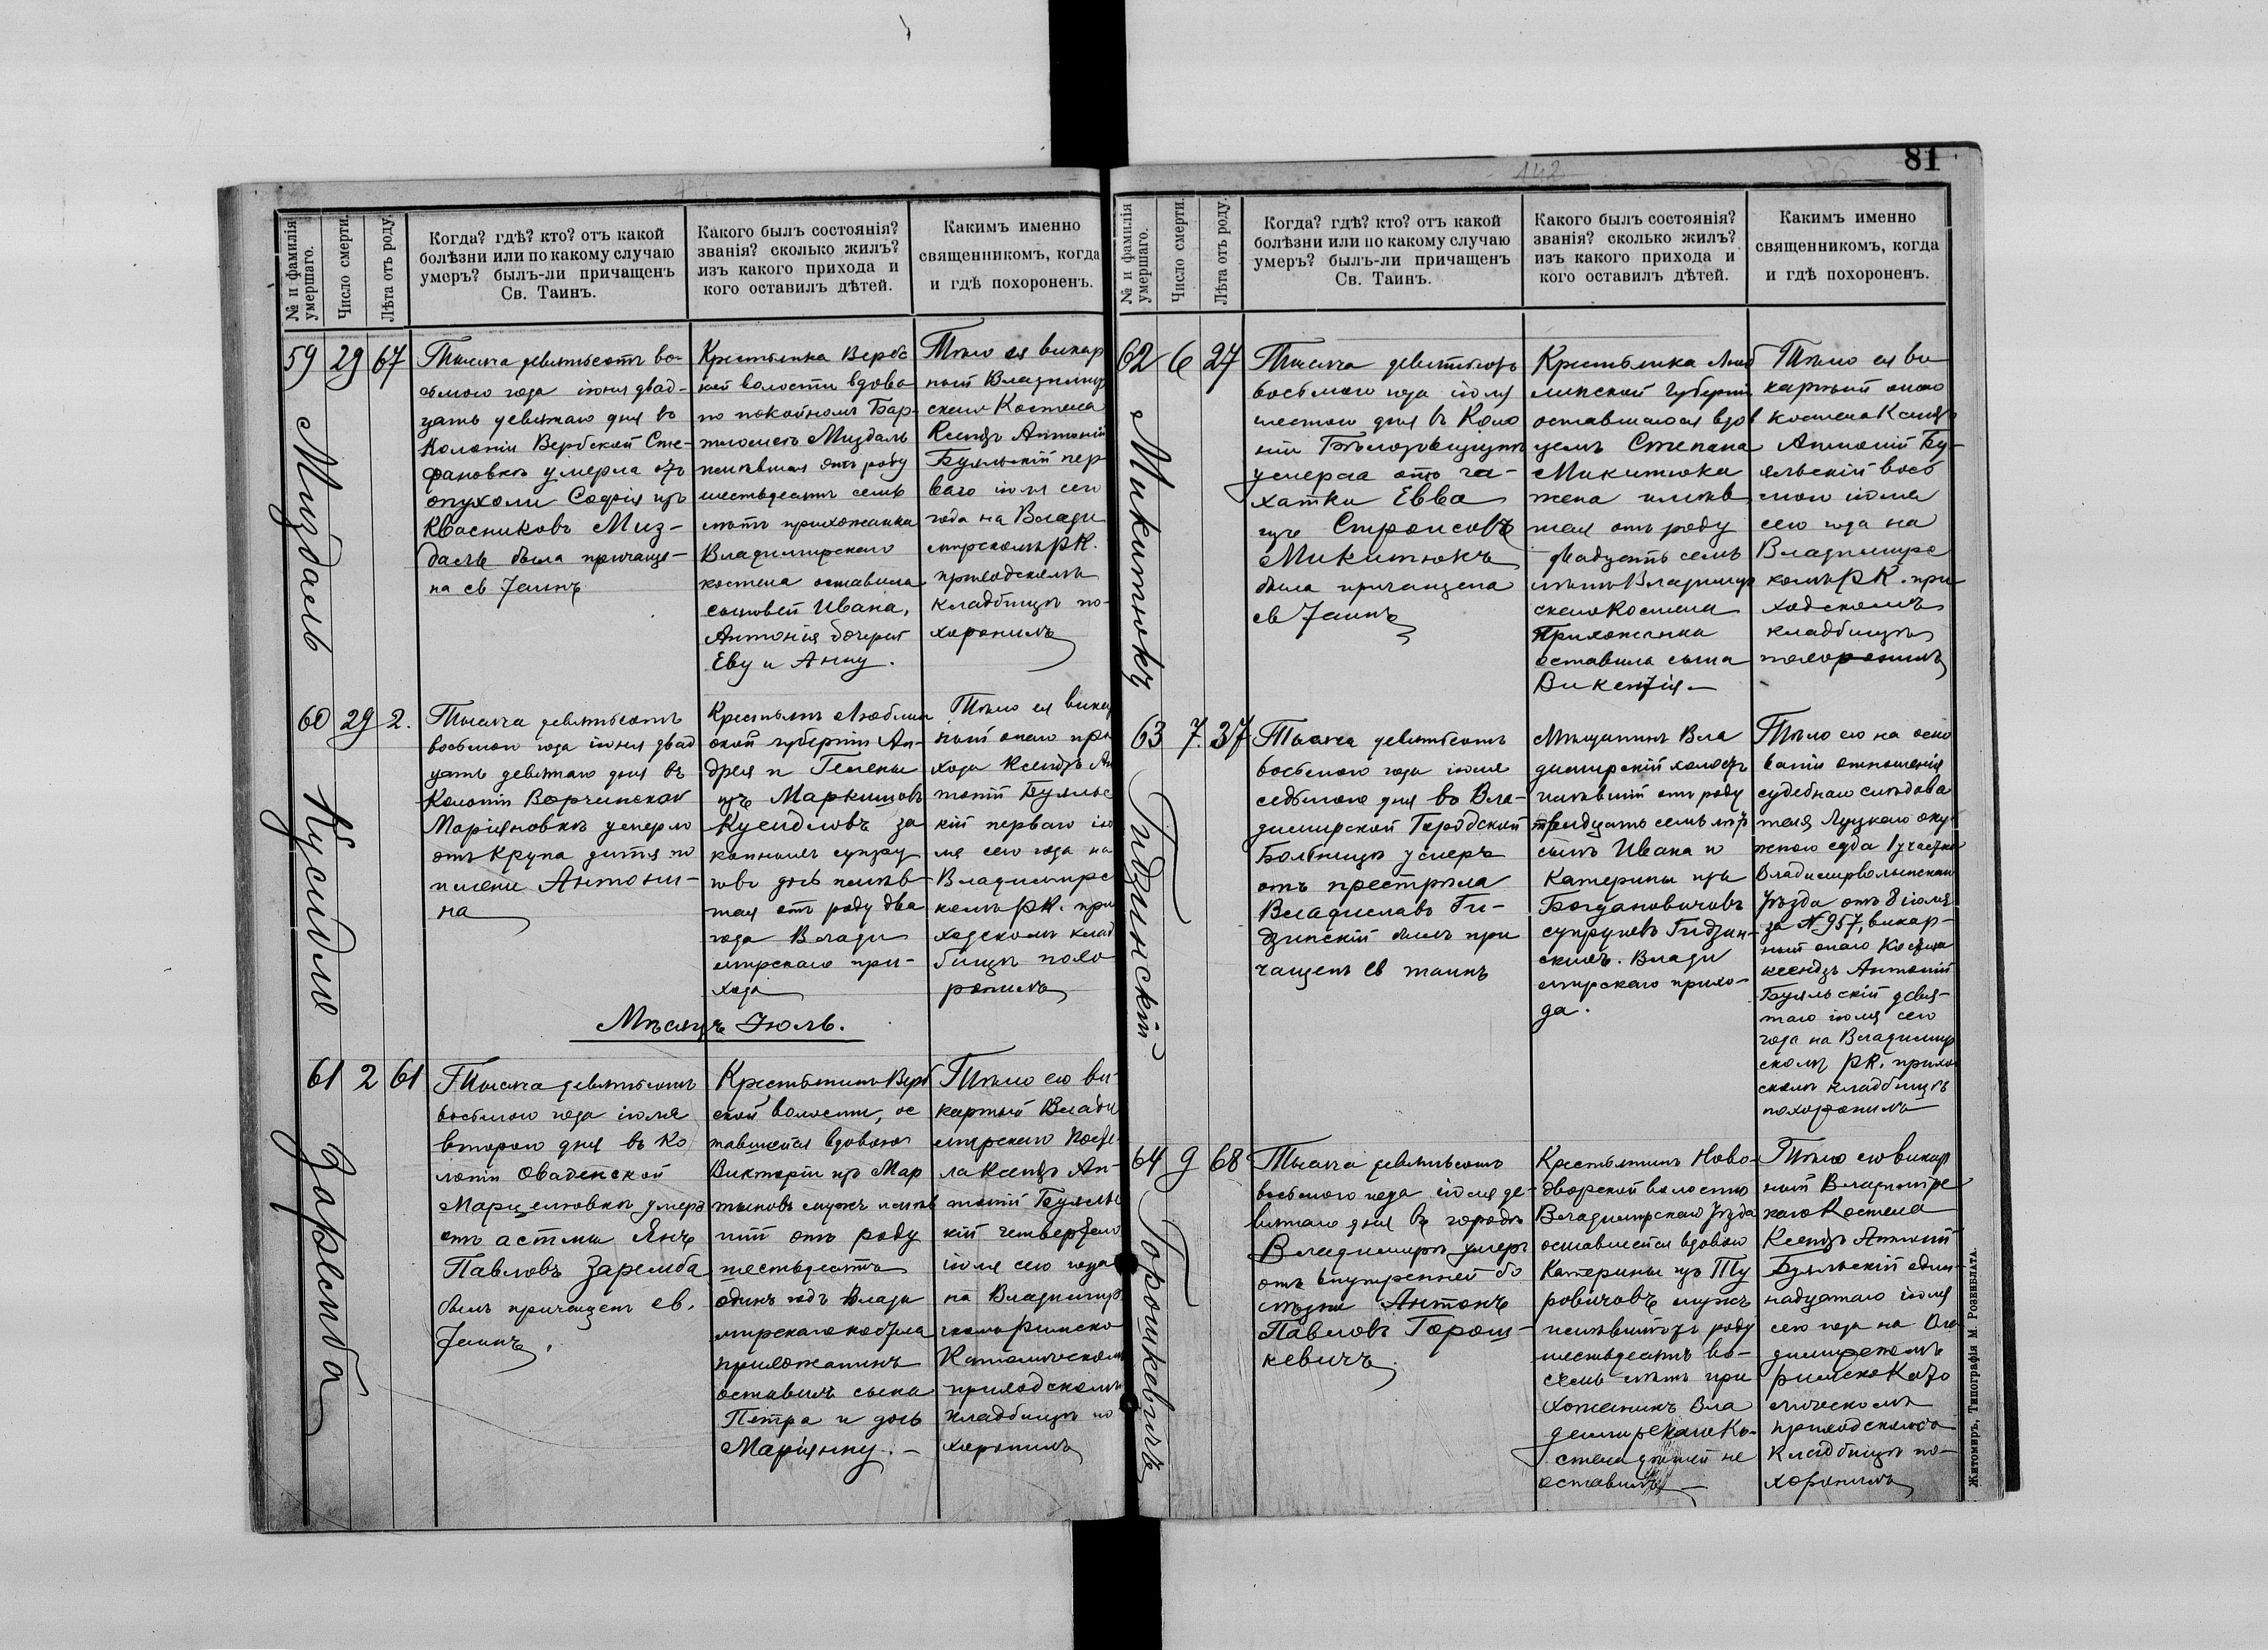 № и фамилія умершаго.
Число смерти.
Лѣта отъ роду.
Когда? гдѣ? кто? отъ какой
болѣзни или по какому случаю
умеръ? былъ-ли причащенъ
Св. Таинъ.
Какого былъ состоянія?
званія? сколько жилъ?
изъ какого прихода и
кого оставилъ дѣтей.
Каким именно
священникомъ, когда
и гдѣ похороненъ.
59 29 67
Миздаль
Тысяча девятьсотъ во-
сьмого года іюня двад-
цать девятаго дня въ
Колоніи Вербской Сте-
фановкѣ умерла отъ
опухоли Софія изъ
Квасниковъ Миз-
даль была причаще-
на св Таинъ
Крестьянка Вербс
кой волости вдова
по покойномъ Бар-
тломеѣ Миздаль
имѣвшая отъ роду
шестьдесятъ семь
лѣтъ прихожанка
Владимирскаго
костела оставила
сыновей Ивана,
Антонія дочерей
Еву и Анну.
Тѣло ея викар
ный Владимир
скаго Костела
Ксендзъ Антоній
Буяльскій пер
ваго іюля сего
года на Влади
мирскомъ РК.
приходскомъ
кладбищѣ по-
хоронилъ
60 29 2.
Кусидло
Тысяча девятьсотъ
восьмого года іюня двад
цать девятаго дня въ
Колоніи Ворчинской
Маріяновкѣ умерло
отъ Крупа дитя по
имени Антони-
на
Крестьянъ Люблин
ской губерніи Ан-
дрея и Гелены
изъ Маркишовъ
Кусидловъ за
конныхъ супру
говъ дочь имѣв-
шая отъ роду два
года Влади
мирскаго при-
хода
Тѣло ея викар
ный онаго при
хода Ксендзъ Ан
тоній Буяльс
кій перваго ію
ля сего года на
Владимирс
комъ РК. при
ходскомъ клад
бищѣ похо
ронилъ
Мѣсяцъ Іюль.
61 2 61
Заремба
Тысяча девятьсотъ
восьмого года іюля
второго дня въ Ко
лоніи Оваденской
Марцелювкѣ умеръ
отъ астмы Янъ
Павловъ Заремба
былъ причащенъ св.
Таинъ.
Крестьянинъ Верб
ской волости, ос
тавшейся вдовою
Викторіи изъ Мар
тыновъ мужъ имѣв
шій отъ роду
шестьдесятъ
одинъ годъ Влади
мирскаго костела
прихожанинъ
оставилъ сына
Петра и дочь
Маріянну. –
Тѣло его ви-
карный Влади
мирскаго Косте-
ла Ксендзъ Ан-
тоній Буяльс
кій четвертаго
іюля сего года
на Владимир
скомъ Римско
Католическомъ
приходскомъ
кладбищѣ по
хоронилъ
81
142
№ и фамилія умершаго.
Число смерти.
Лѣта отъ роду.
Когда? гдѣ? кто? отъ какой
болѣзни или по какому случаю
умеръ? былъ-ли причащенъ
Св. Таинъ.
Какого былъ состоянія?
званія? сколько жилъ?
изъ какого прихода и
кого оставилъ дѣтей.
Какимъ именно
священникомъ, когда
и гдѣ похороненъ.
62 6 27
Микитюкъ
Тысяча девятьсотъ
восьмого года іюля
шестого дня въ Коло
ніи
умерла отъ ча-
хотки Евва
изъ
Микитюкъ
была причащена
св Таинъ
Крестьянка Люб
линской губерніи
оставшагося вдов
цемъ Степана
Микитюка
жена имѣв
шая отъ роду
двадцать семь
лѣтъ Владимир
скаго Костела
Прихожанка
оставила сына
Викентія –
Тѣло ея ви
карный онаго
костела Ксендзъ
Антоній Бу-
яльскій вось
мого іюля
сего года на
Владимирс
комъ РК. при
ходскомъ
кладбищѣ
похоронилъ
63 7. 37
Гидзинскій
Тысяча девятьсотъ
восьмого года іюля
седьмого дня во Вла-
димирской Городской
Больницѣ умеръ
отъ престрѣла
Владиславъ Ги-
дзинскій былъ при
чащенъ св таинъ
Мѣщанинъ Вла
димирскій холостъ
имѣвшій отъ роду
тридцать семь лѣтъ
сынъ Ивана и
Катерины изъ
Богдановичовъ
супруговъ Гидзин-
скихъ. Влади
мирскаго прихо-
да.
Тѣло его на осно
ваніи отношенія
судебнаго слѣдова
теля Луцкаго окру
жного суда 1 участка
Владимирволынскаго
уѣзда отъ 8 іюля
за № 957, викар-
ный онаго Костела
ксендзъ Антоній
Буяльскій девя-
таго іюля сего
года на Владимир
скомъ РК. приход
скомъ кладбищѣ
похоронилъ
64 9 68
Горошкевичъ
Тысяча девятьсотъ
восьмого года іюля де-
вятаго дня въ городѣ
Владимирѣ умеръ
отъ внутренней бо
лѣзни Антонъ
Павловъ Горош-
кевичъ.
Крестьянинъ Ново-
дворской волости
Владимирскаго уѣзда
оставшейся вдовою
Катерины изъ Ту
ровичовъ мужъ
имѣвшій отъ роду
шестьдесятъ во-
семь лѣтъ при
хожанинъ Вла
димирскаго Ко-
стела дѣтей не
оставилъ –
Тѣло его викар
ный Владимирс
каго Костела
Ксендзъ Антоній
Буяльскій один-
надцатаго іюля
сего года на Вла
димирскомъ
римско Като
лическомъ
приходскомъ
Кладбищѣ по-
хоронилъ
Житомиръ, Типографія М. Розенблата.